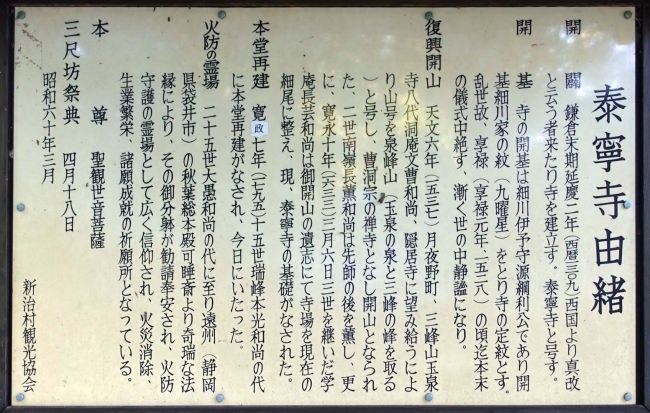 泰寧寺由緒
開闢 鎌倉末期延慶二年(西暦一三〇九)西国より真改
と云う者来たり寺を建立す。泰寧寺と号す。
開基 寺の開基は細川伊予守源綱利公であり開
基細川家の紋(九曜星)をとり寺の定紋とす。
乱世故、享禄(享禄元年、一五二八)の頃迄本末
の儀式中絶す、漸く世の中静謐になり。
復興開山 天文六年(一五三七)月夜野町、三峰山玉泉
寺八代洞庵文曹和尚、隠居寺に望み給うによ
り山号を泉峰山(玉泉の泉と三峰の峰を取る
)と号し、曹洞宗の禅寺となし開山となられ
た、二世南嶺長薫和尚は先師の後を薫し、更
に、寛永十年(一六三三)三月六日三世を継いだ学
庵長芸和尚は御開山の遺志にて寺場を現在の
細尾に整え、現、泰寧寺の基礎がなされた。
本堂再建 寛政七年(一七九五)十五世瑞峰本光和尚の代
に本堂再建がなされ、今日にいたった。
火防の霊場 二十五世大愚和尚の代に至り遠州(静岡
県袋井市)の秋葉総本殿可睡斎より奇瑞な法
縁により、その御分躰が勧請奉安され、火防
守護の霊場として広く信仰され、火災消除、
生業繁栄、諸願成就の祈願所となっている。
本尊 聖観世音菩薩
三尺坊祭典 四月十八日
昭和六十年三月
新治村観光協会